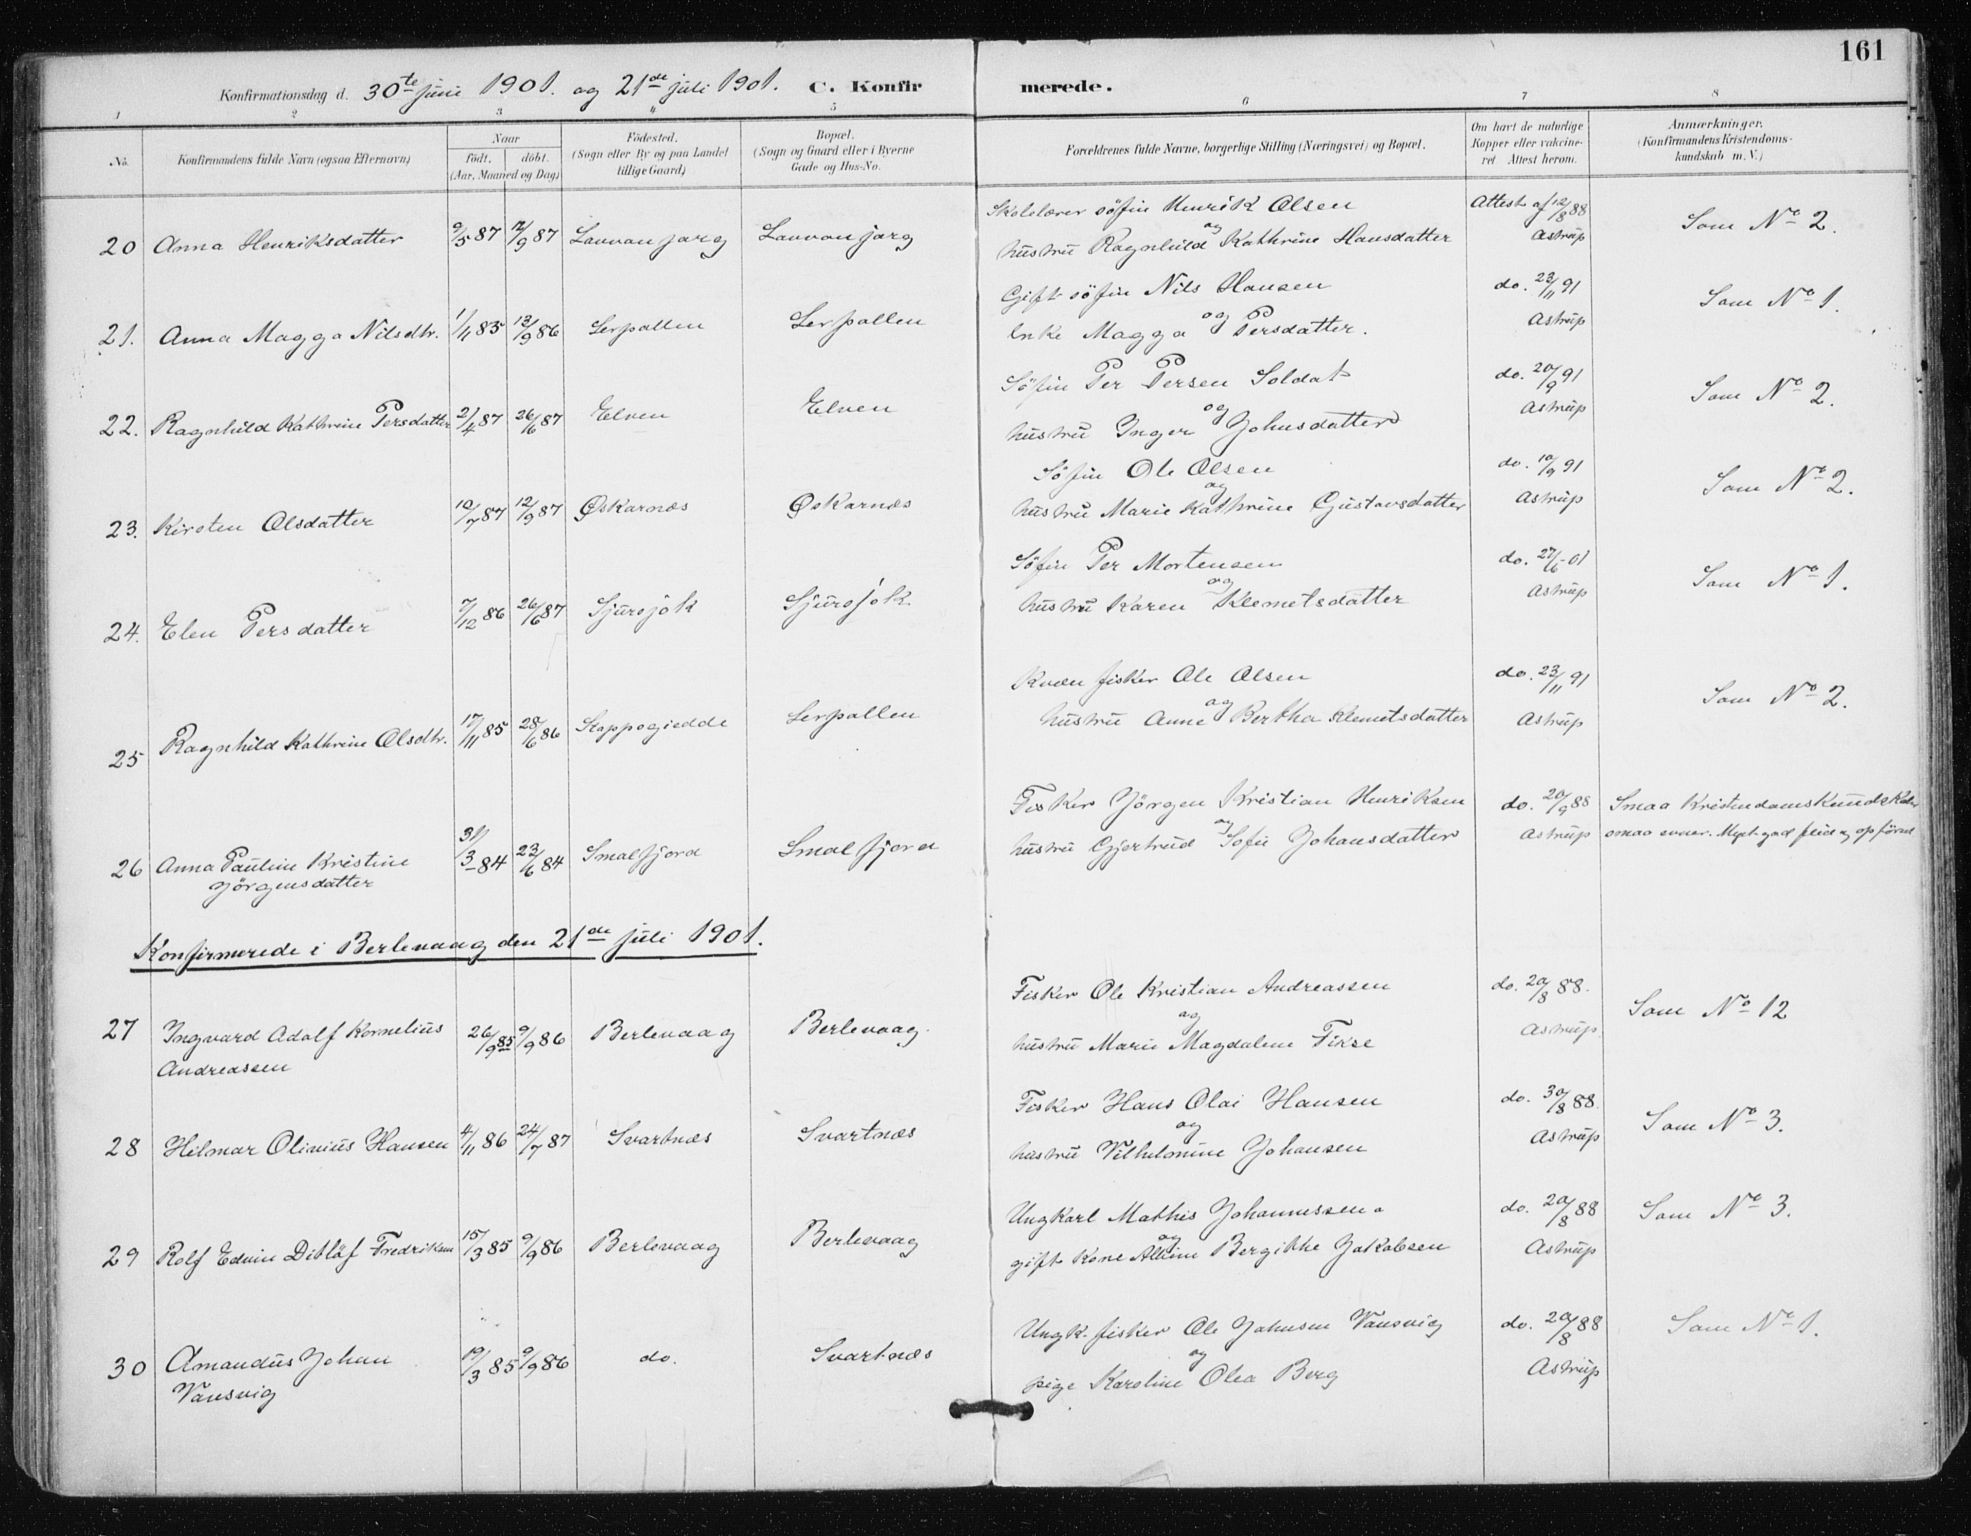 161
Konfirmationsdag d. 30te juni 1901. og 21de juli 1901. C. Konfirmerede.
1 2 3 4 5 6 7 8
No. Konfirmandens fulde Navn (ogsaa Efternavn) Naar födt. döbt. (Aar, Maaned og Dag) Födested. (Sogn eller By og paa Landet tillige Gaard) Bopæl. (Sogn og Gaard eller i Byerne Gade og Hus-No. Forældrenes fulde Navne, borgerlige Stilling (Næringsvei) og Bopæl. Om havt de naturlige Kopper eller vakcineret Attest herom. Anmærkninger. (Konfirmandens Kristendomskundskab m. V.)
20 Anna Henriksdatter 9/5 87 12/9 87 Lavvonjarg Lavvonjarg Skolelærer söfin Henrik Olsen og hustru Ragnhild Kathrine Hansdatter Attest af 12/8 88 Astrup Som No 2.
21. Anna Magga Nilsdtr. 1/11 85 13/9 86 Lerpollen Lerpollen Gift söfin Nils Hansen og Enke Magga Persdatter. do. 23/11 91 Astrup Som No 1.
22. Ragnhild Kathrine Persdatter 2/4 87 26/6 87 Elven Elven Söfin Per Persen Soldat og hustru Inger Johnsdatter do. 20/9 91 Astrup Som No 2.
23. Kirsten Olsdatter 10/7 87 12/9 87 Öskarnæs Öskarnæs Söfin Ole Olsen og hustru Marie Kathrine Gjustavsdatter do. 10/9 91 Astrup Som No 2.
24. Elen Persdatter 7/12 86 26/6 87 Sjursjok Sjursjok Söfin Per Mortensen og hustru Karen Klemetsdatter do. 27/6-01 Astrup Som No 1.
25 Ragnhild Kathrine Olsdtr. 17/11 85 28/6 86 Stappogiedde Lerpollen Kvæn fisker Ole Olsen og hustru Anne Bertha Klemetsdatter do. 23/11 91 Astrup Som No 2.
26 Anna Pauline Kristine Jörgensdatter 31/3 84 23/6 84 Smalfjord Smalfjord Fisker Jörgen Kristian Henriksen og hustru Gjertrud Sofie Johansdatter do. 20/9 88 Astrup Smaa Kristendomskundskaber smaa evner. Myet god flid og opförsel
Konfirmerede i Berlevaag den 21de juli 1901.
27 Ingvard Adolf Kornelius Andreassen 26/9 85 9/9 86 Berlevaag Berlevaag. Fisker Ole Kristian Andreassen og hustru Marie Magdalene Fikse do. 20/8 88. Astrup. Som No 12
28 Hilmar Olinius Hansen 4/11 86 24/7 87 Svartnæs Svartnæs Fisker Hans Olai Hansen og hustru Vilhelmine Johansen do. 30/8 88. Astrup Som No 3.
29 Rolf Edvin Ditlöf Fredriksen 15/3 85 9/9 86 Berlevaag Berlevaag Ungkarl Mathis Johannessen og gift Kone Albine Bergikke Jakobsen do. 20/8 88 Astrup Som No 3.
30 Amandus Johan Vansvig 19/3 85 9/9 86 do. Svartnæs Ungk. fisker Ole Johnsen Vansvig og pige Karoline Olea Berg do. 20/8 88 Astrup Som No 1.